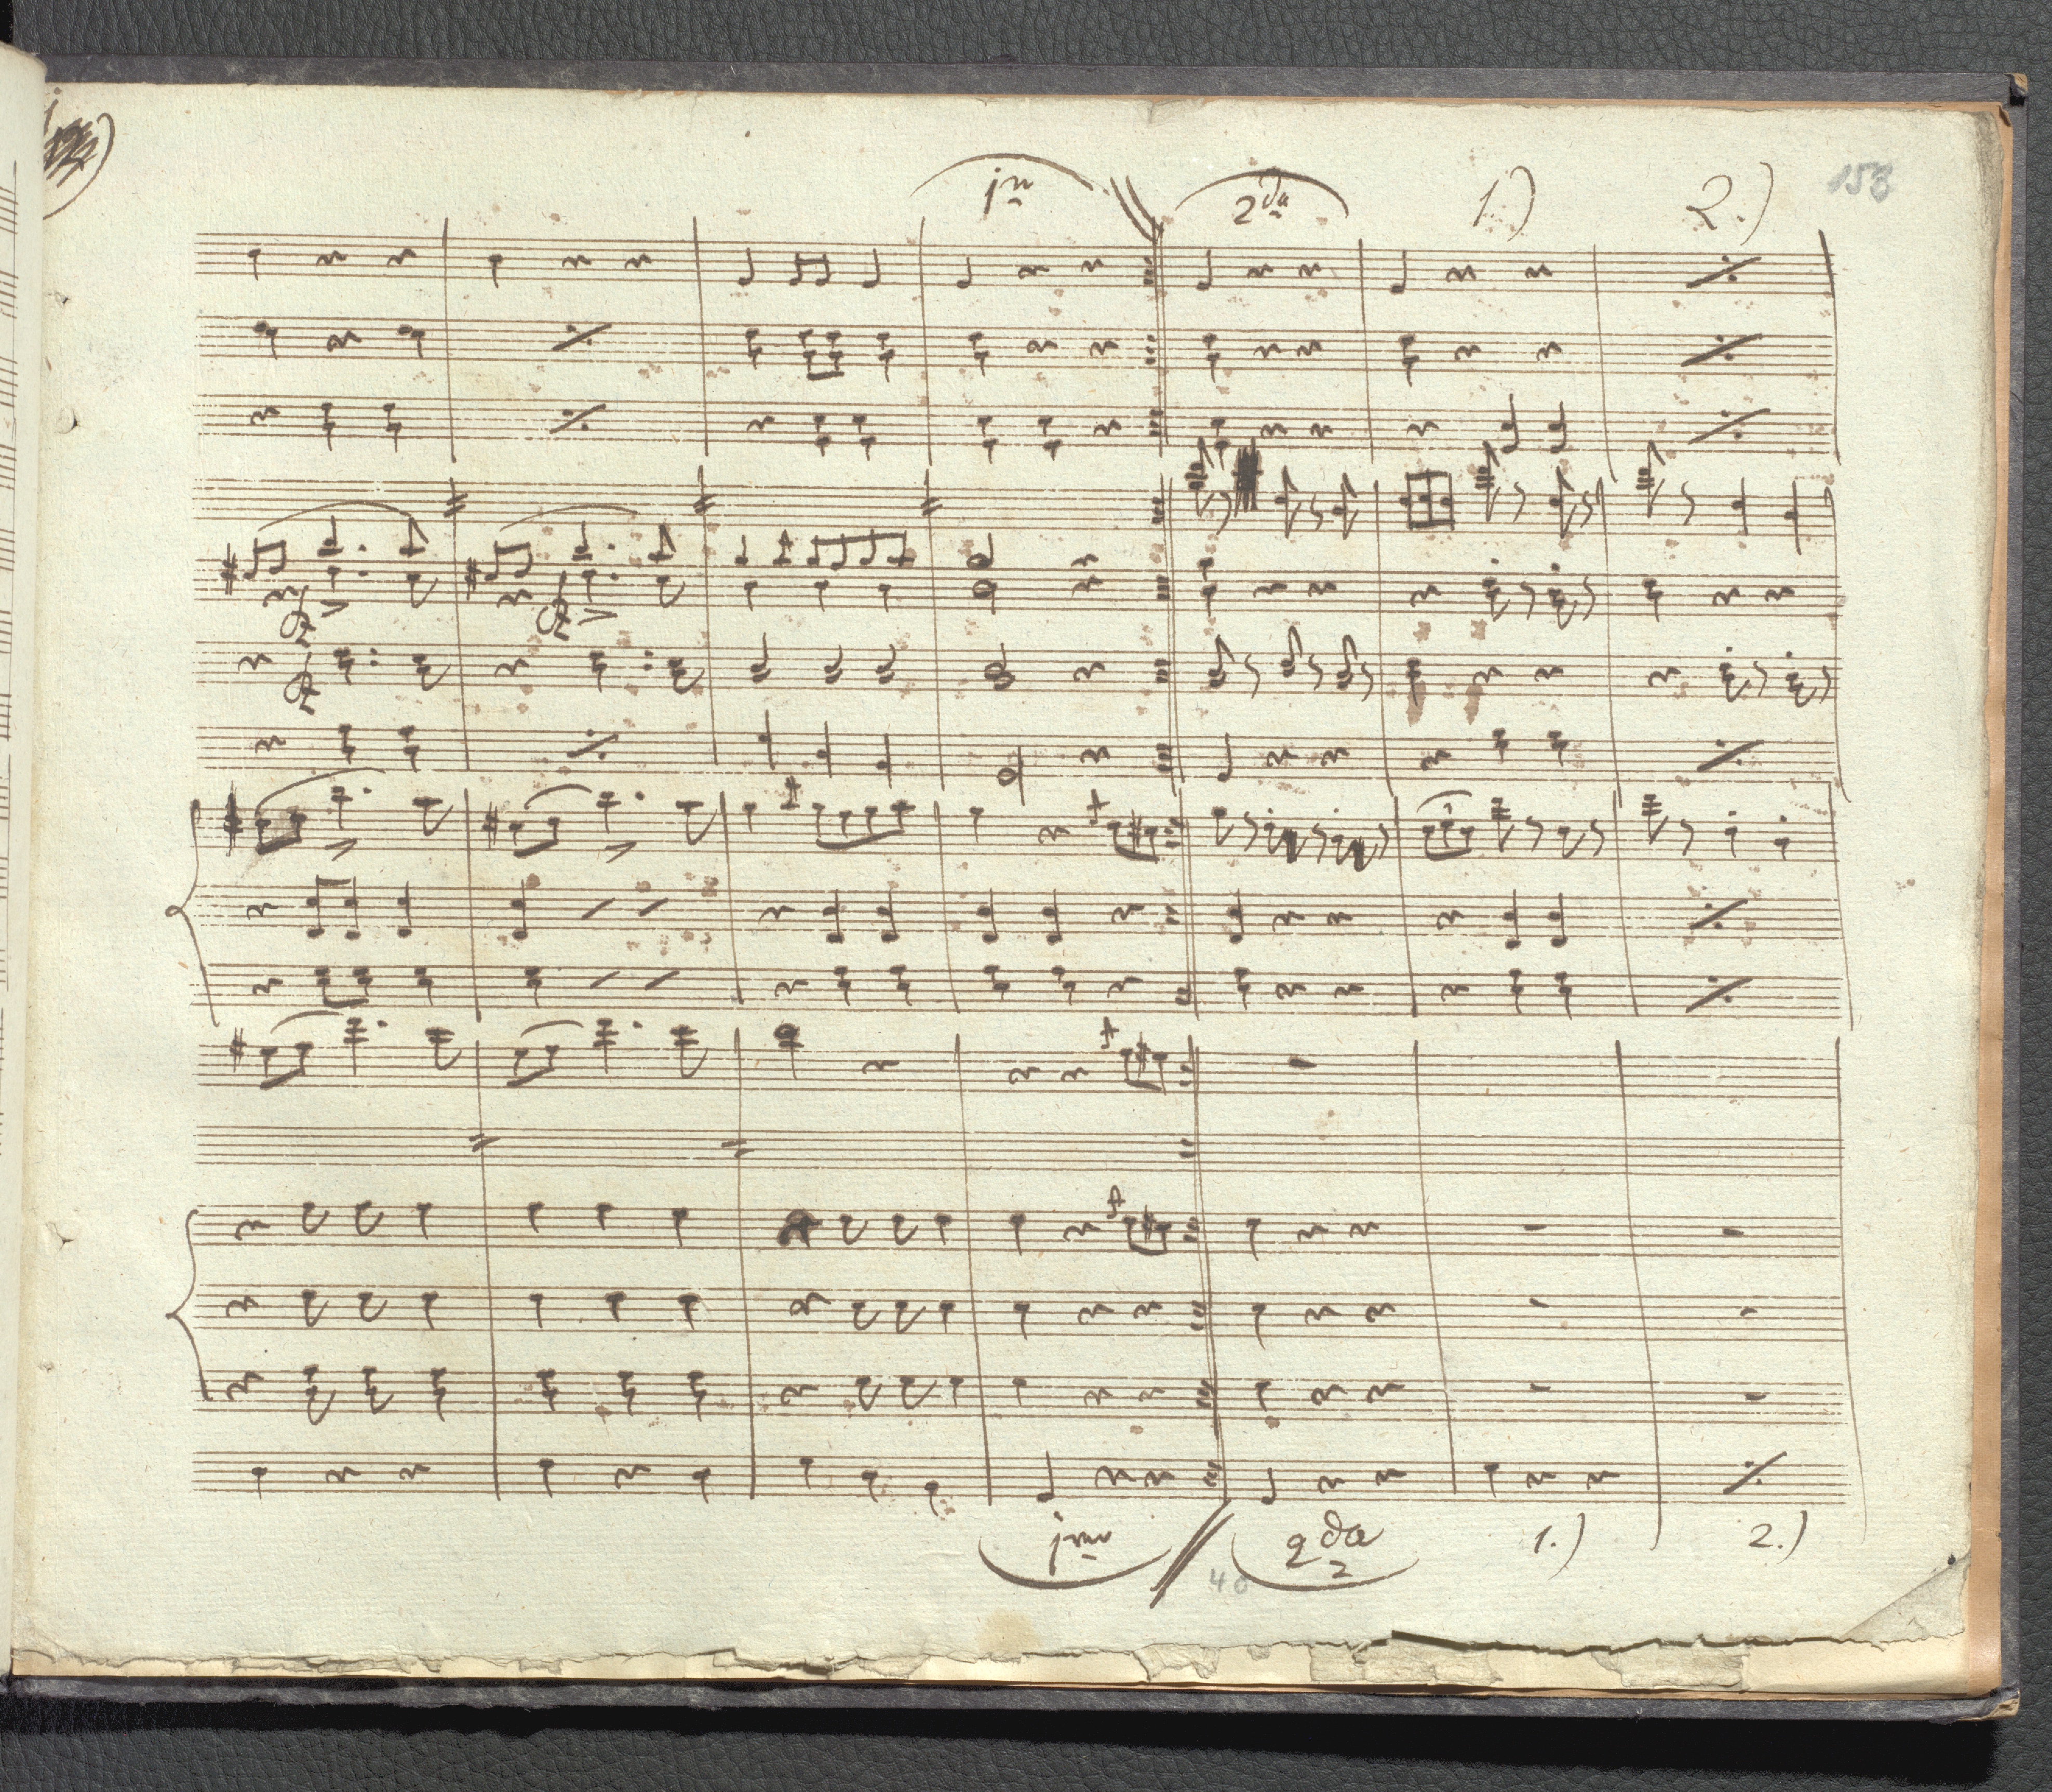 1ma 2da 1.) 2.) 153
f
f
f
1mo 2da 1.) 2.)
40